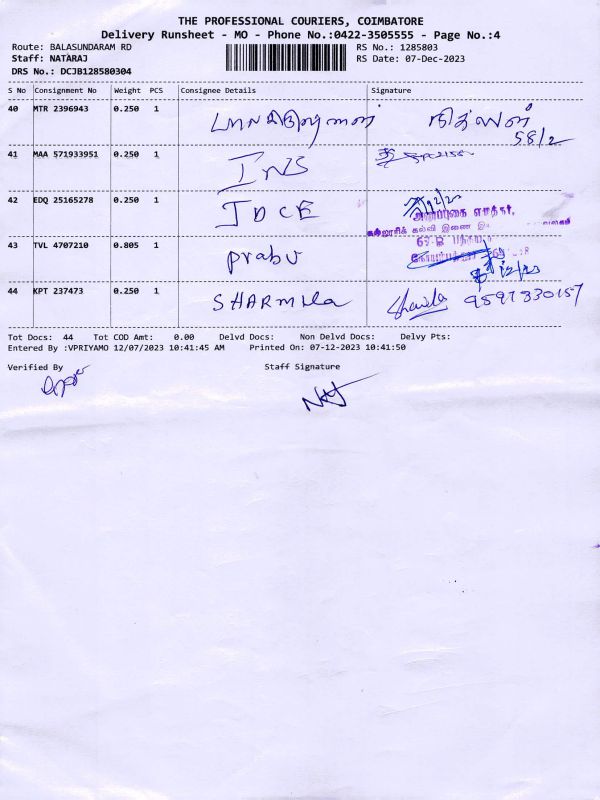 THE PROFESSIONAL COURIERS, COIMBATORE
Delivery Runsheet - MO - Phone No.:0422-3505555 - Page No.:4
Route: BALASUNDARAM RD RS No.: 1285803
Staff: NATARAJ RS Date: 07-Dec-2023
DRS No.: DCJB128580304
S No Consignment No Weight PCS Consignee Details Signature
40 MTR 2396943 0.250 1
58/2
41 MAA 571933951 0.250 1 INS
42 EDQ 25165278 0.250 1 JDCE
கல்லூரிக் கல்வி இணை
43 TVL 4707210 0.805 1 prabu
44 KPT 237473 0.250 1 SHARMILA 9597330157
Tot Docs: 44 Tot COD Amt: 0.00 Delvd Docs: Non Delvd Docs: Delvy Pts:
Entered By :VPRIYAMO 12/07/2023 10:41:45 AM Printed On: 07-12-2023 10:41:50
Verified By Staff Signature